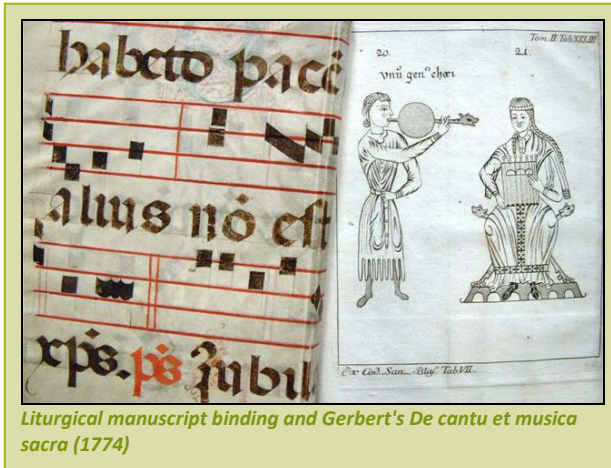 habeto pacē
alius nō est
xp̄s. p̄s Jubil
Tom. II. Tab. XXXIII
20. 21.
vnū gen' chori
Ex Cod. San_Blas. Tab. VII.
Liturgical manuscript binding and Gerbert's De cantu et musica
sacra (1774)